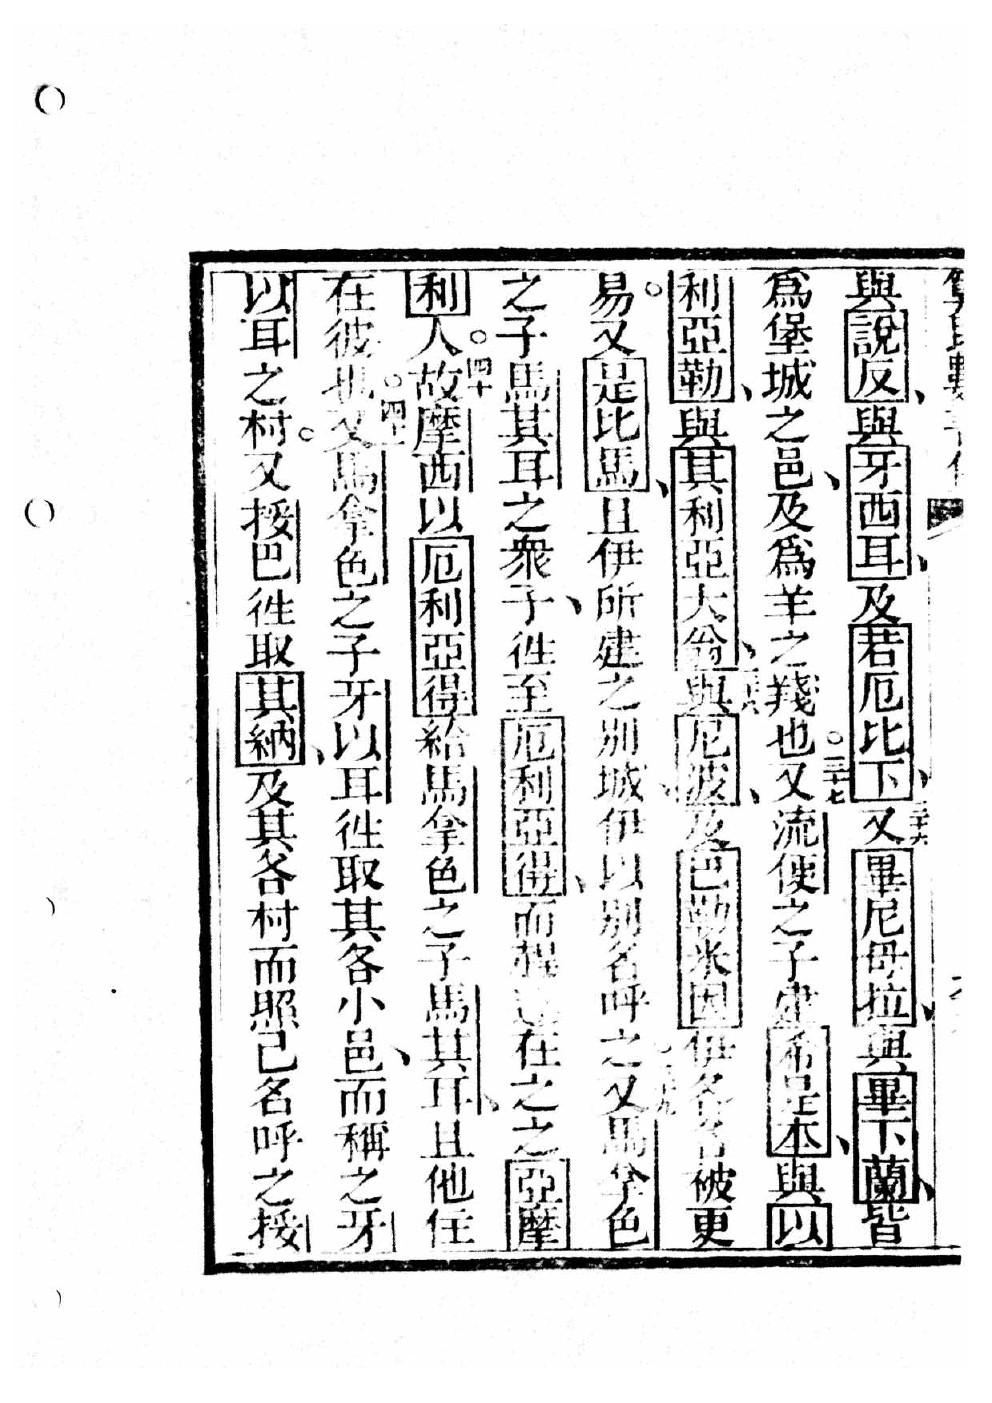 與說反、與牙西耳、及若厄比下、三十六又畢尼母拉、與畢下蘭、皆
爲堡城之邑、及爲羊之羧也。三十七又流便之子建希是本、與以
利亞勒、與其利亞大翁、與尼波、及巴勒米因伊各名被更
易。又是比馬、且伊所建之別城、伊以別名呼之又馬拿色
之子馬其耳之衆子、徃至厄利亞得、而程在之之亞摩
利人。四十故摩西以厄利亞得給馬拿色之子馬其耳、且他住
在彼。四十一又馬拿色之子牙以耳徃取其各小邑、而稱之牙
以耳之村。又挼巴徃取其納、及其各村而照己名呼之挼